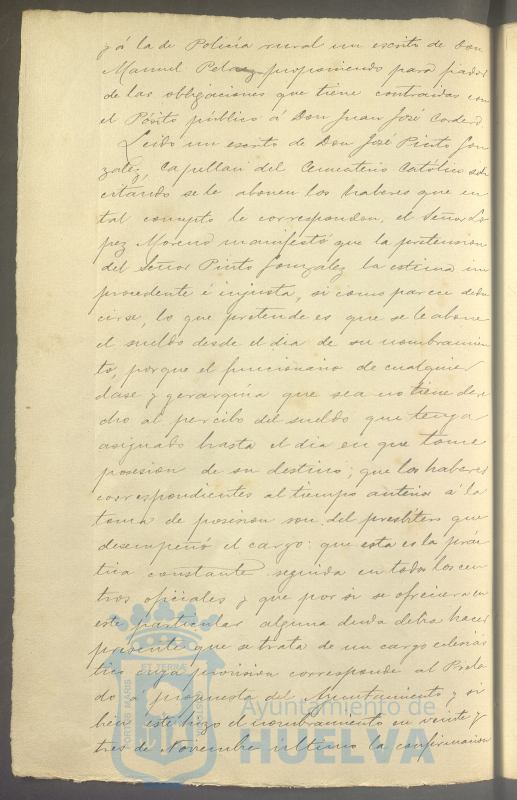 y á la de Policía rural un escrito de Don
Manuel Pelaez proponiendo para fiador
de las obligaciones que tiene contraidas con
el Pósito público á Don Juan José Cordero
Leido un escrito de Don José Pinto Gon
zalez, Capellan del Cementerio Católico soli
citando se le abonen los haberes que en
tal concepto le correspondan, el Señor Lo
pez Moreno manifestó que la pretension
del Señor Pinto Gonzalez la estima im
procedente é injusta, si como parece dedu
cirse, lo que pretende es que se le abone
el sueldo desde el dia de su nombramien
to, porque el funcionario de cualquier
clase y gerarquía que sea no tiene dere
cho al percibo del sueldo que tenga
asignado hasta el dia en que tome
posesion de su destino; que los haberes
correspondientes al tiempo anterior á la
toma de posesion son del presbítero que
desempeñó el cargo: que esta es la prac
tica constante seguida en todos los cen
tros oficiales y que por si se ofreciera en
este particular alguna duda debia hacer
presente que se trata de un cargo eclesias
tico cuya provision corresponde al Prela
do á propuesta del Ayuntamiento y si
bien este hizo el nombramiento en veinte y
tres de Noviembre ultimo la confirmacion
PORTUS MARIS
ET TERRÆ
CUSTODIA
Ayuntamiento de
HUELVA